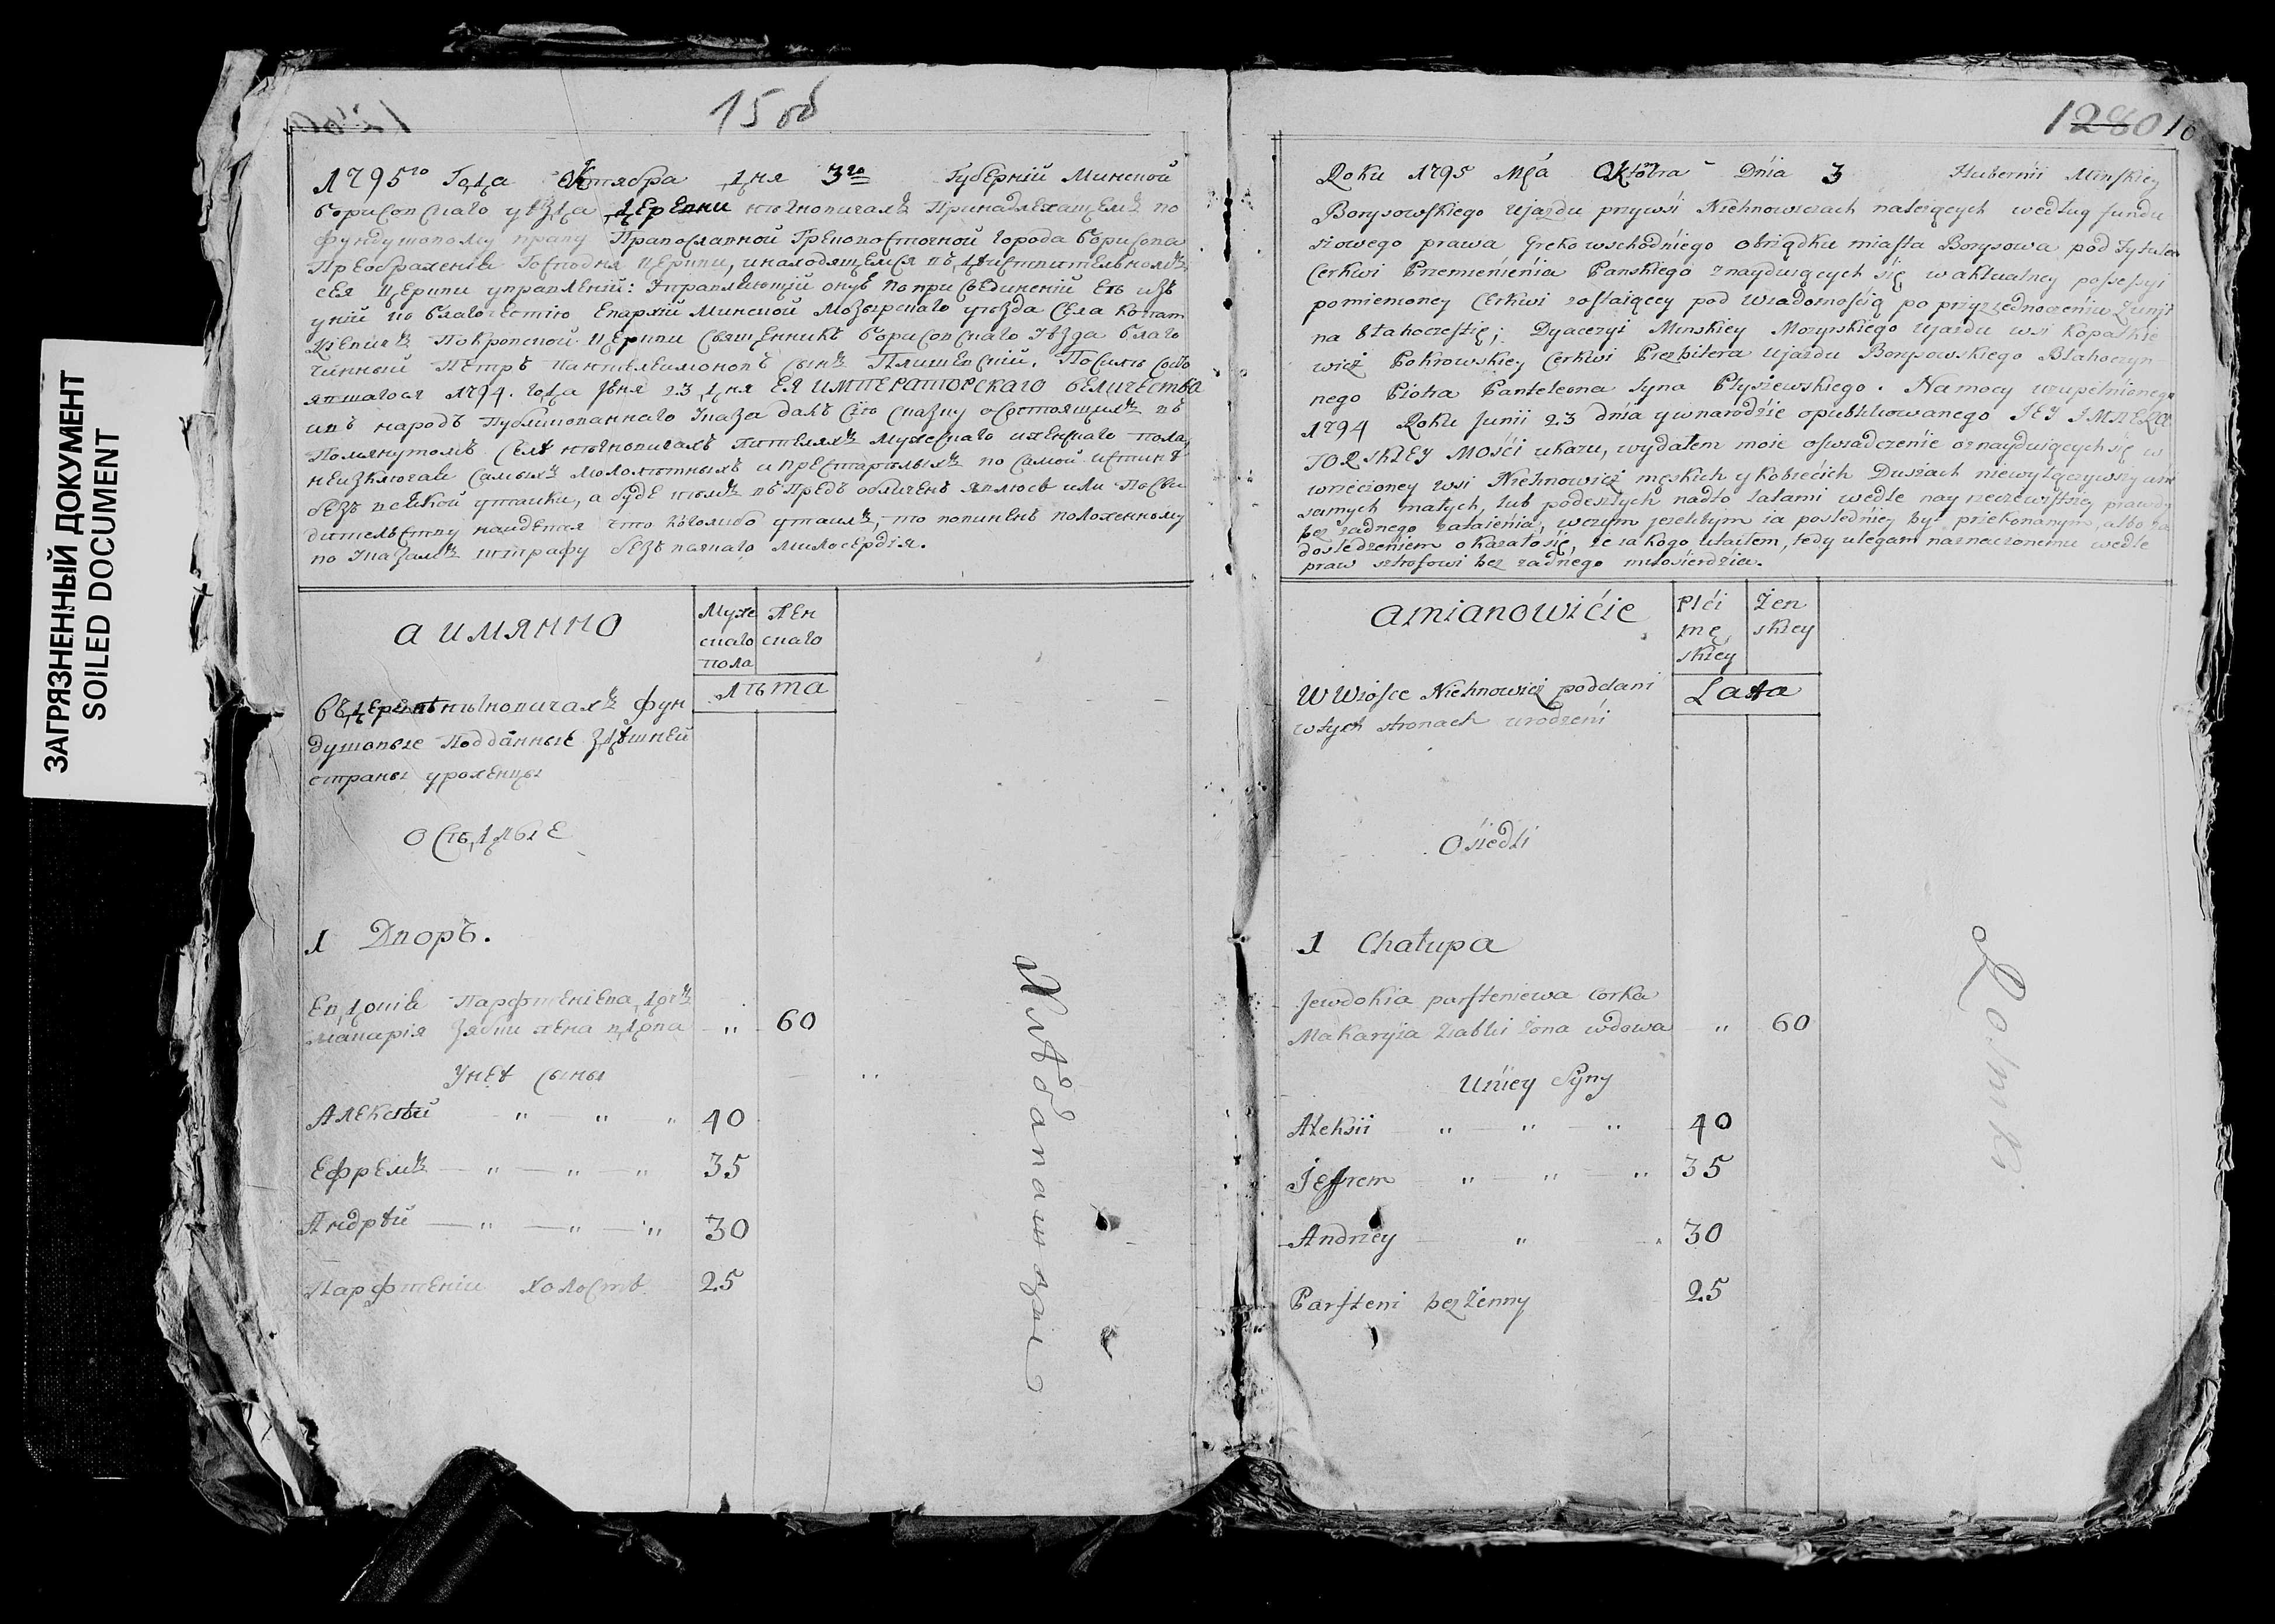 ЗАГРЯЗНЕННЫЙ ДОКУМЕНТ
SOILED DOCUMENT
15 об
1795го Года Октября дня 3го Губерніи Минской
Борисовскаго уѣзда деревни нѣгновичахъ Принадлежащемъ по
фундушовому праву Православной Грековосточной города Борисова
Преображенія Господня церкви, инаходящемся въ дѣйствительномъ
сея церкви управленіи: Управляющій онуъ поприсоединеніи еѣ изъ
уніи ко благочестію Епархіи Минской Мозырскаго уѣзда Села Копат
кевичъ Покровской Церкви Священникъ Борисовскаго Уѣзда благо
чинный Петръ Пантелеимоновъ сынъ Плышевскій. По силѣ состо
явшагося 1794. года Іюня 23 дня ЕЯ ИМПЕРАТОРСКАГО ВЕЛИЧЕСТВА
ивъ народъ Публикованнаго Указа далъ сію сказку осостоящихъ въ
Помянутомъ Селѣ нѣгновичахъ жителяхъ Мужескаго иженскаго пола,
неизключая самыхъ малолѣтныхъ и престарѣлыхъ по самой истинѣ
безъ всякой утайки, а буде кѣмъ въ предъ обличенъ явлюсь или по сви
дительству найдется что коголибо утаилъ, то повиненъ положенному
по Указамъ штрафу безъ всякаго милосердія.
А ИМЯННО
Муже
скаго
пола
Жен
скаго
Лѣта
Въ деревнѣ нѣгновичахъ фун
душовые Подданные здѣшней
страны уроженцы
Осѣдлые
1 Дворъ.
Евдокія Парфтеніева дочь
Макарія Зябки жена вдова " 60
У неѣ сыны
Алексѣй " " " 40
Ефремъ " " " 35
Андрѣй " " " 30
Парфтеніи холостъ 25
12801
Roku 1795 Mca Oktobra Dnia 3 Hubernii Minskiey
Borysowskiego Ujazdu przywsi Niehnowiczach należących według fundu
szowego prawa Greko wschodniego obrządku miasta Borysowa pod Tytułem
Cerkwi Przemienienia Panskiego znayduiących się w aktualney possessyi
pomienioney Cerkwi zostaiącey pod wiadomością po przyziednoczeniu z unji
na błahoczestię; Dyacezyi Minskiey Mozyrskiego Ujazdu wsi Kopatkie
wicz Pokrowskiey Cerkwi Prezbitera Ujazdu Borysowskiego Błahoczyn
nego Piotra Panteleona syna Płyszewskiego. Namocy wupełnionego
1794 Roku Junii 23 dnia y w narodzie opublikowanego JEY IMPERA
TORSKIEY MOści ukazu, wydałem moie oswiadczenie oznayduiących się w
wrzeczoney wsi Niehnowicz męskich y kobiecich Duszach niewyłączywszy ani
samych małych, lub podeszłych nadto latami wedle nay rzeczewistszey prawdy
bez żadnego zataienia, wczym jezelibym ia posledniey był przekonanym, albo za
dosledzeniem okazałosię, ze ia kogo utaiłem, tedy ulegam naznaczonemu wedle
praw sztrofowi bez zadnego miłosierdzia.
Amianowićie
Płći
mę
skiey
Żen
skiey
Lata
W Wiosce Niehnowicz poddani
w tych stronach urodzeni
Osiedli
1 Chałupa
Jewdokia parfteniewa Corka
Makaryia Ziabki żona wdowa " 60
Uniey Syny
Aleksii " " " 40
Jefrem " " " 35
Andrzey " " 30
Parfteni bezżenny 25